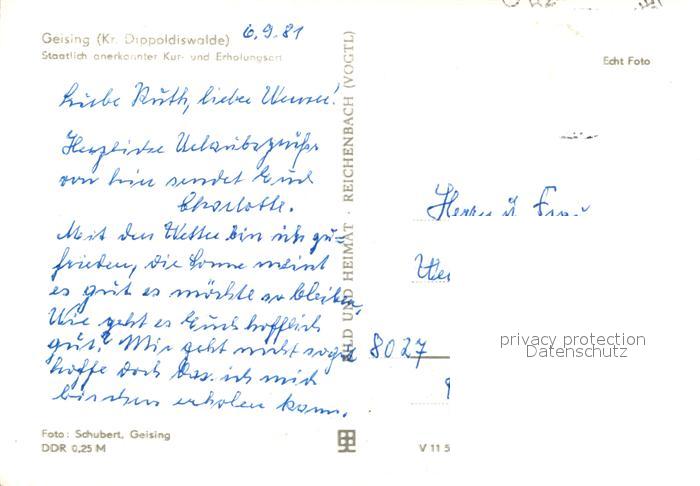 Geising (Kr. Dippoldiswalde) 6.9.81
Staatlich anerkannter Kur- und Erholungsort
Liebe Ruth, lieber Werner!
Herzliche Urlaubsgrüße
von hier sendet Euch
Charlotte.
Mit den Wetter bin ich zu=
frieden, die Sonne meint
es gut es möchte so bleiben.
Wie geht es Euch hofftlich
gut? Mir geht nicht so gut
hoffe doch das ich mich
bischen erholen kann.
Foto: Schubert, Geising
DDR 0,25 M
BILD UND HEIMAT · REICHENBACH (VOGTL)
Echt Foto
Herrn u Frau
8027
privacy protection
Datenschutz
V 11 5